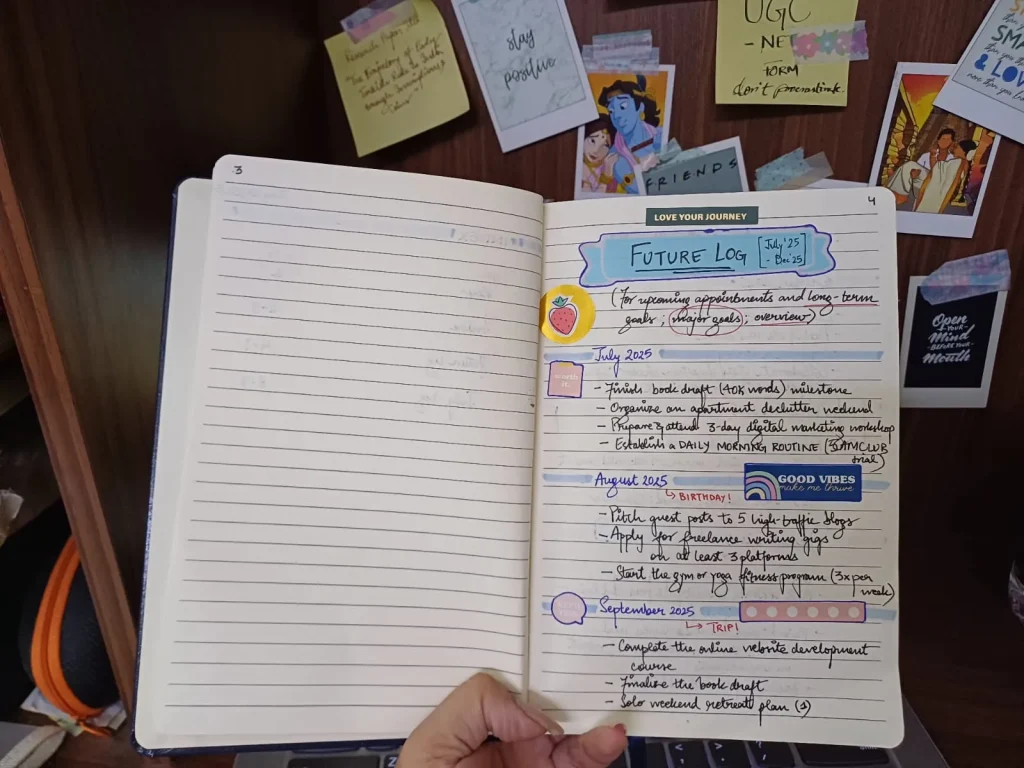 stay
positive
UGC
- NET
FORM
don't procrastinate.
FRIENDS
SMA
& LOV
Open
YOUR
Mind
BEFORE YOUR
Mouth
3
4
LOVE YOUR JOURNEY
FUTURE LOG [July'25
- Dec'25]
(For upcoming appointments and long-term
goals; major goals; overview)
July 2025
worth
it.
- Finish book draft (40K words) milestone
- Organize an apartment declutter weekend
- Prepare & attend 3-day digital marketing workshop
- Establish a DAILY MORNING ROUTINE (5AMCLUB
trial)
August 2025
↳ BIRTHDAY!
GOOD VIBES
make me thrive
- Pitch guest posts to 5 high-traffic blogs
- Apply for freelance writing gigs
on at least 3 platforms
- Start the gym or yoga fitness program (3x per
week)
September 2025
↳ TRIP!
- Complete the online website development
course
- Finalise the book draft
- Solo weekend retreat plan (1)